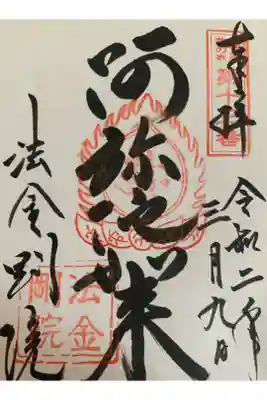 奉拝
令和二年
三月九日
阿弥陀如来
法金剛院
法金
剛院